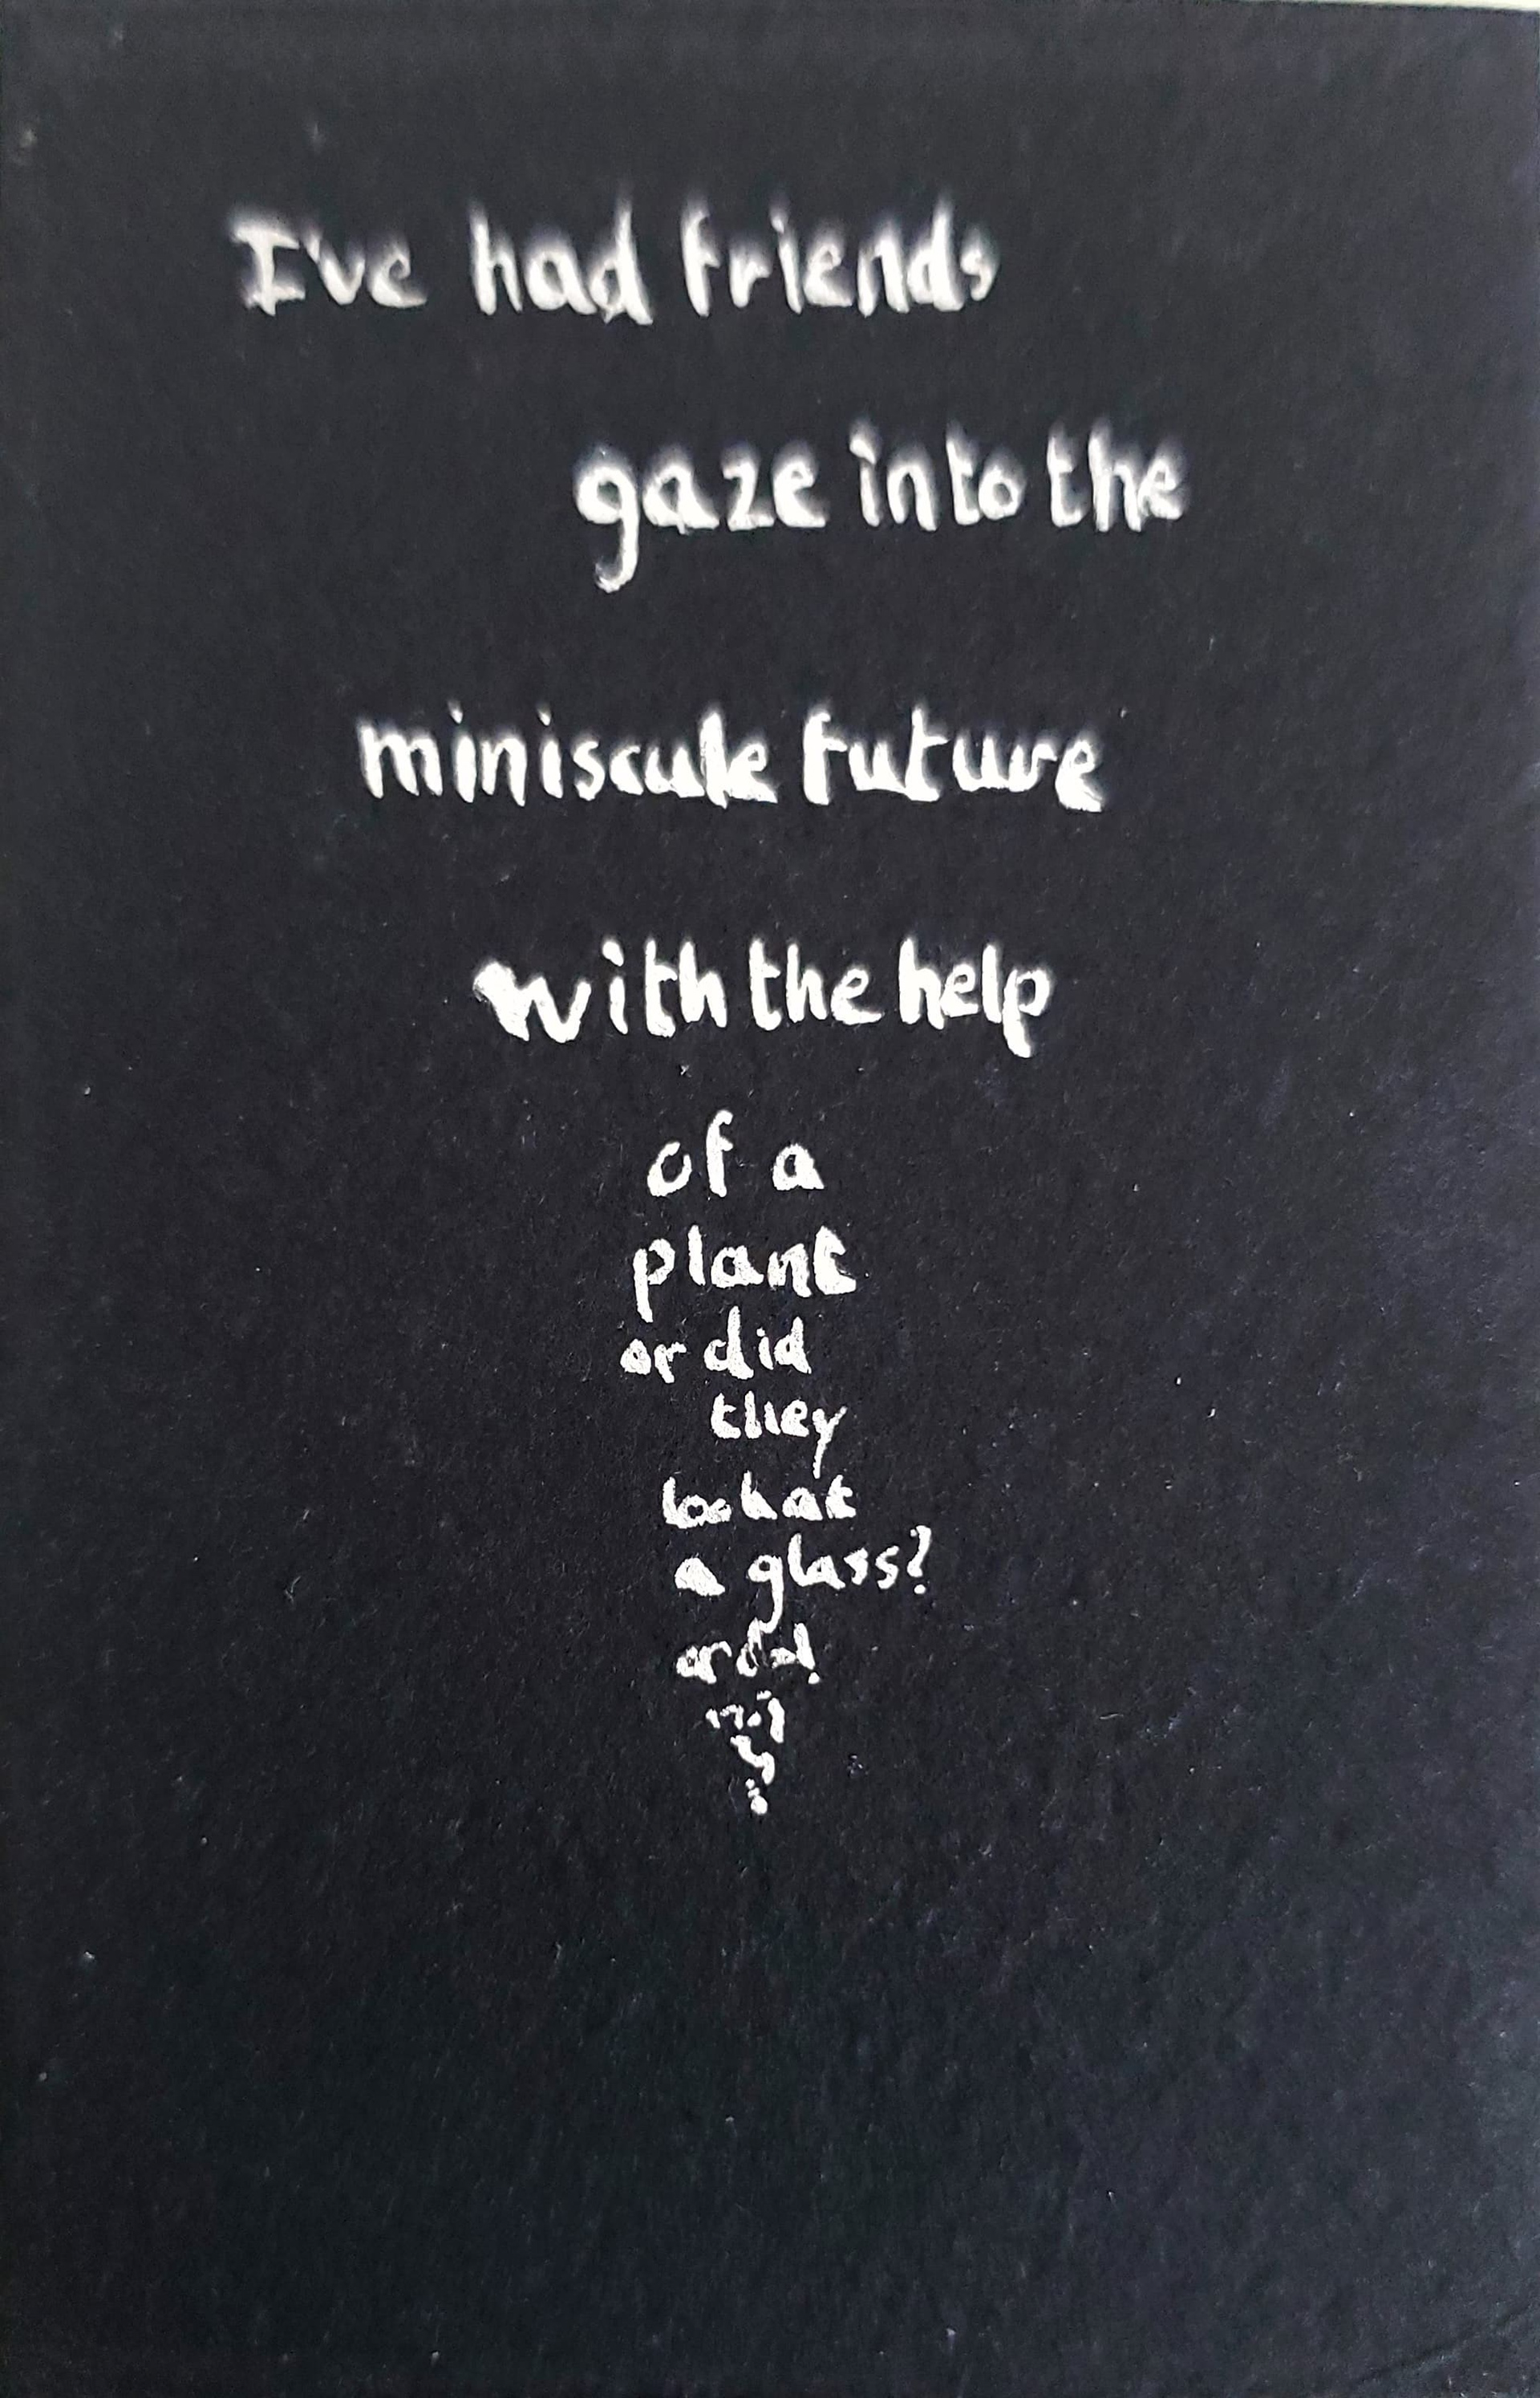 I've had friends
gaze into the
miniscule future
with the help
of a
plant
or did
they
look at
a glass?